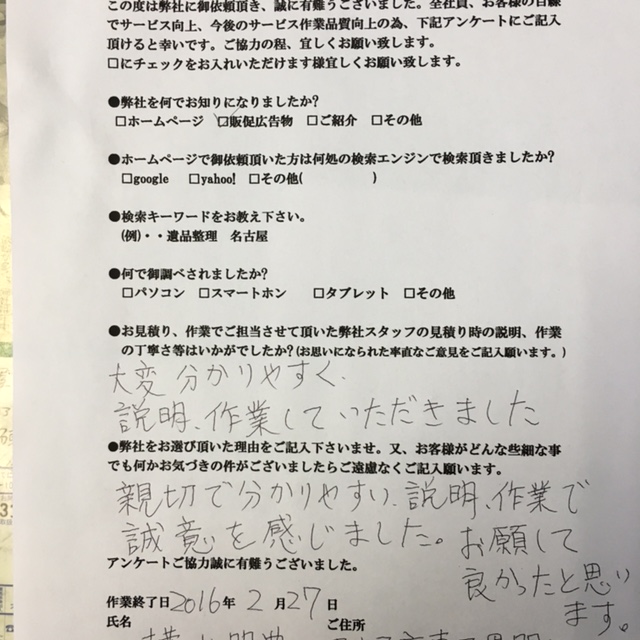 この度は弊社に御依頼頂き、誠に有難うございました。全社員、お客様の目線
でサービス向上、今後のサービス作業品質向上の為、下記アンケートにご記入
頂けると幸いです。ご協力の程、宜しくお願い致します。
□にチェックをお入れいただけます様宜しくお願い致します。
●弊社を何でお知りになりましたか?
□ホームページ ☑販促広告物 □ご紹介 □その他
●ホームページで御依頼頂いた方は何処の検索エンジンで検索頂きましたか?
□google □yahoo! □その他( )
●検索キーワードをお教え下さい。
(例)・・遺品整理 名古屋
●何で御調べされましたか?
□パソコン □スマートホン □タブレット □その他
●お見積り、作業でご担当させて頂いた弊社スタッフの見積り時の説明、作業
の丁寧さ等はいかがでしたか?(お思いになられた率直なご意見をご記入願います。)
大変分かりやすく、
説明、作業していただきました
●弊社をお選び頂いた理由をご記入下さいませ。又、お客様がどんな些細な事
でも何かお気づきの件がございましたらご遠慮なくご記入願います。
親切で分かりやすい説明、作業で
誠意を感じました。お願して
良かったと思い
ます。
アンケートご協力誠に有難うございました。
作業終了日2016年 2月27日
氏名 ご住所